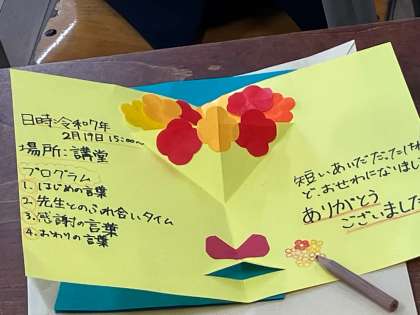 日時:令和7年
2月19日 15:00〜
場所:講堂
プログラム
1. はじめの言葉
2. 先生とのふれ合いタイム
3. 感謝の言葉
4. おわりの言葉
短いあいだだったけれ
ど、おせわになりまし
ありがとう
ございました